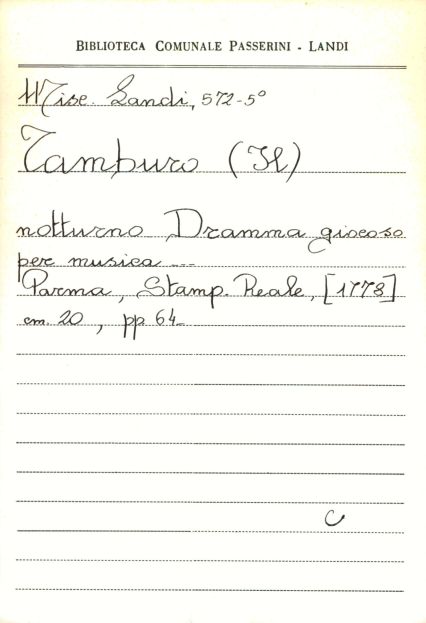 BIBLIOTECA COMUNALE PASSERINI - LANDI
Misc. Landi, 572-5°
Tamburo (Il)
notturno Dramma giocoso
per musica ...
Parma, Stamp. Reale, [1778]
cm. 20, pp 64
C